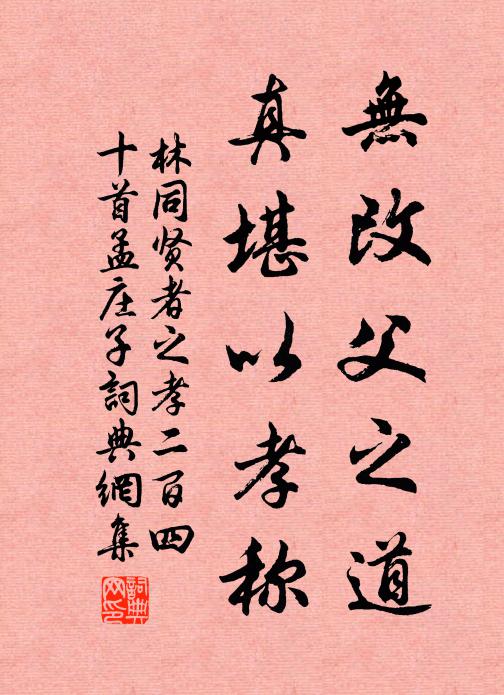 無改父之道
真堪以孝称
林同贤者之孝二百四
十首孟庄子詞典網集
詞典網印